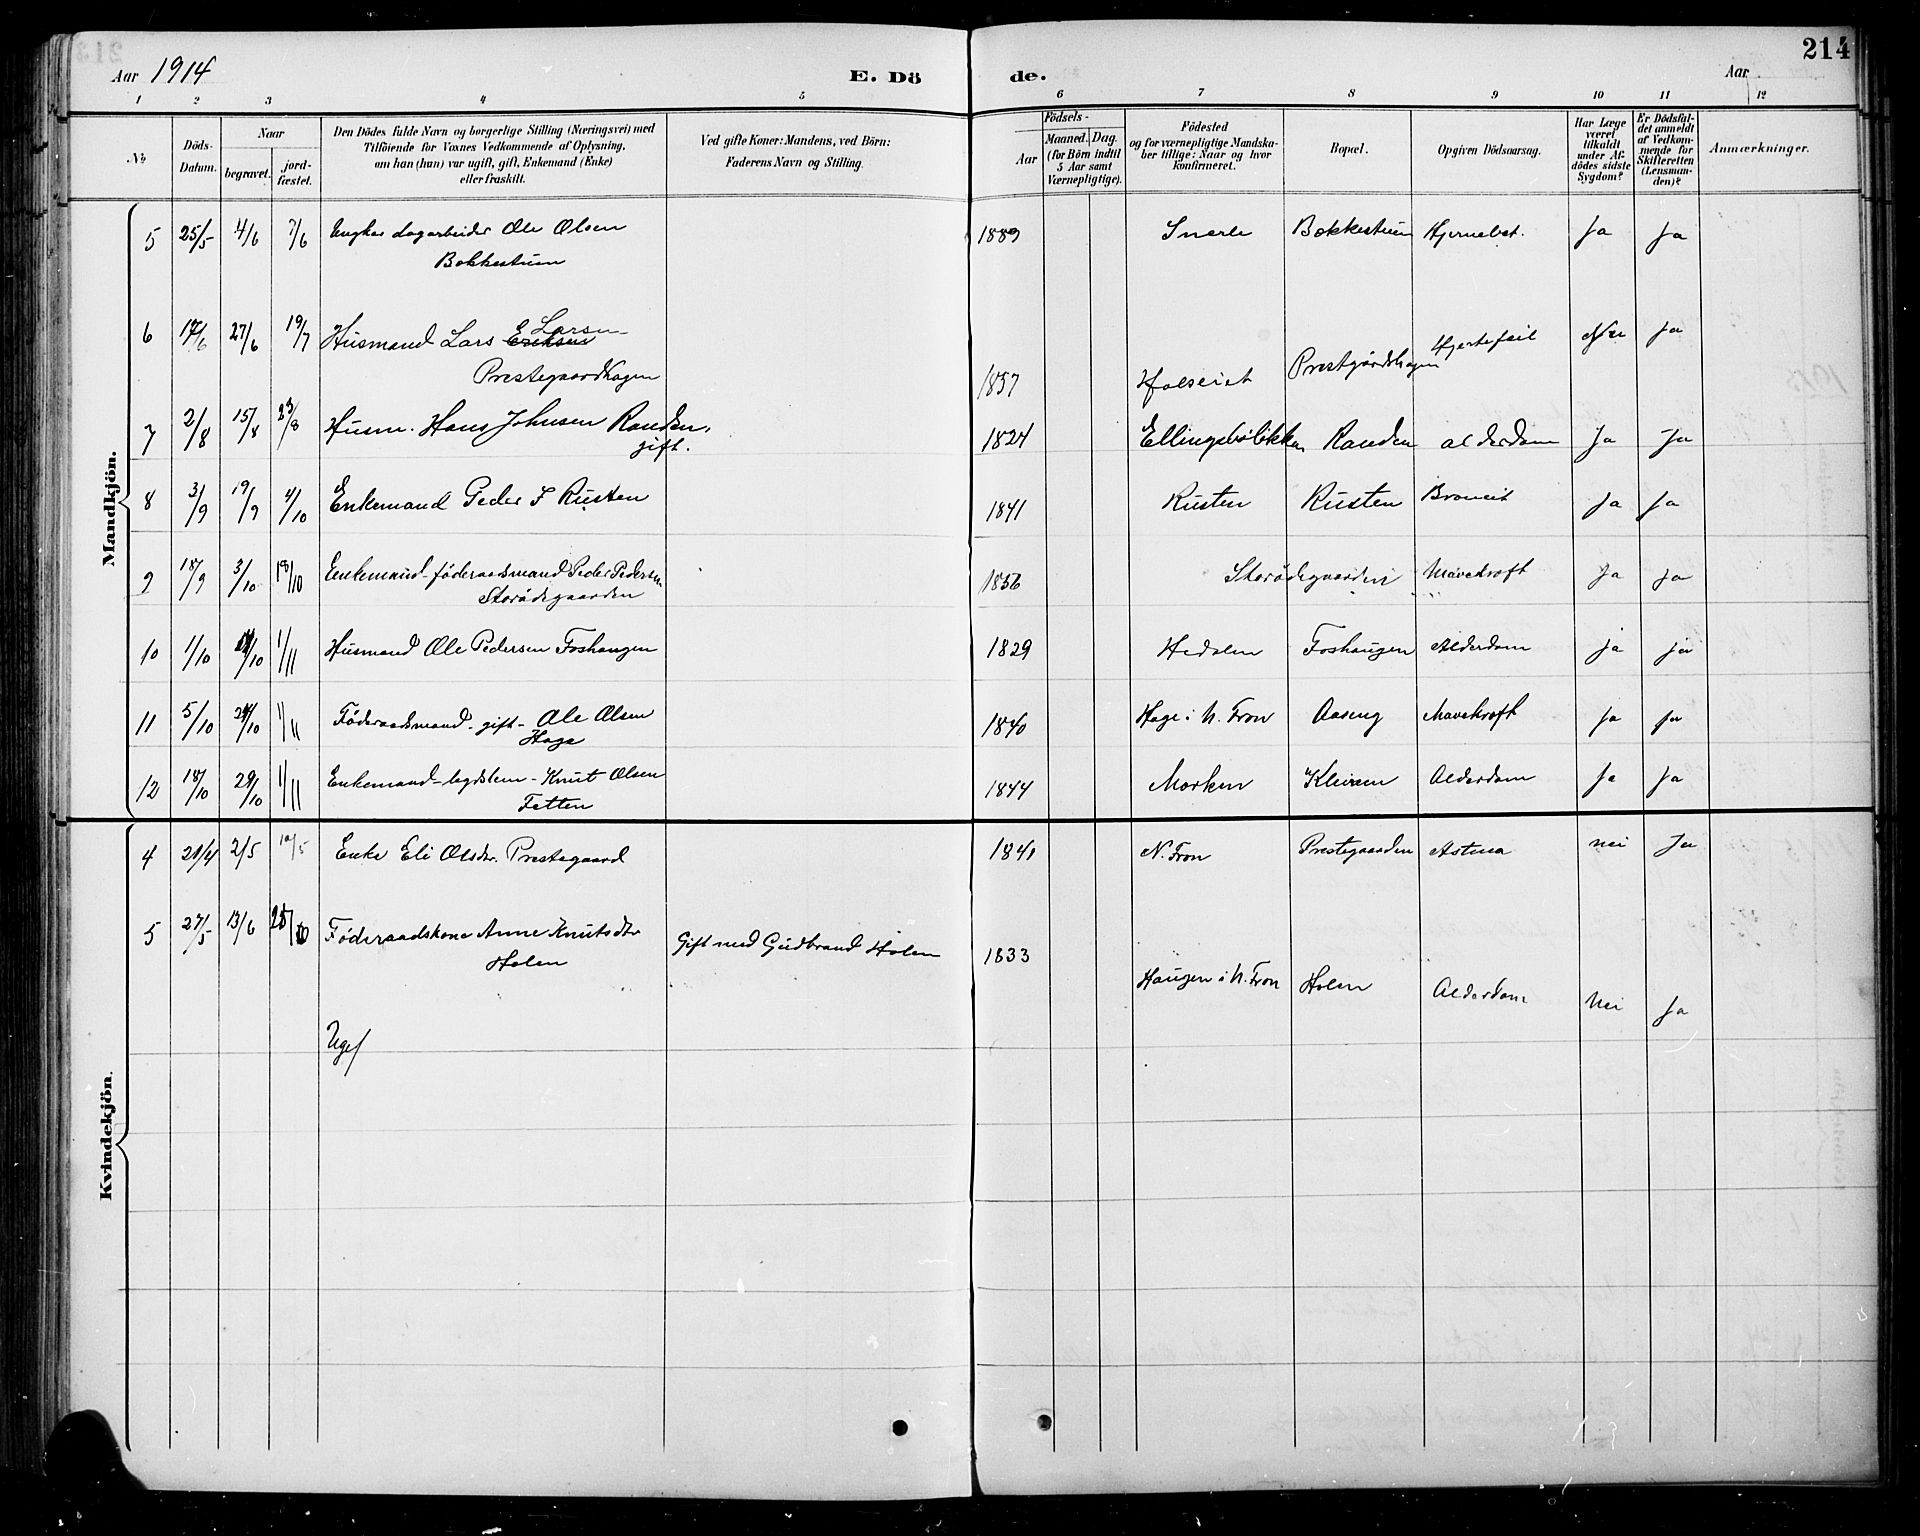 214
Aar 1914 E. Dö de. Aar
1 2 3 4 5 6 7 8 9 10 11 12
No
Döds-Datum.
Naar
begravet.
jord-fæstet.
Den Dödes fulde Navn og borgerlige Stilling (Næringsvei) med
Tilföiende for Voxnes Vedkommende af Oplysning,
om han (hun) var ugift, gift, Enkemand (Enke)
eller fraskilt.
Ved gifte Koner: Mandens, ved Börn:
Faderens Navn og Stilling.
Födsels-
Aar
Maaned. Dag.
(for Börn indtil
5 Aar samt
Værnepligtige).
Födested
og for værnepligtige Mandska-
ber tillige: Naar og hvor
konfirmeret.
Bopæl.
Opgiven Dödsaarsag.
Har Læge
været
tilkaldt
under Af-
dödes sidste
Sygdom?
Er Dödsfal-
det anmeldt
af Vedkom-
mende for
Skifteretten
(Lensman-
den)?
Anmærkninger.
Mandkjön.
5 25/5 4/6 7/6 Ungkar dagarbeider Ole Olsen 1889 Snerle Bokkestuen Hjernebet. Ja Ja
Bokkestuen
6 17/6 27/6 19/7 Husmand Lars Eriksen Larsen 1837 Holseiet Prestgårdshagen Hjertefeil Nei Ja
Prestegaardhagen
7 2/8 15/8 23/8 Husm. Hans Johnsen Randen, 1824 Ellingsbøløkken Randen alderdom Ja Ja
gift.
8 3/9 19/9 4/10 Enkemand Peder J Rusten 1841 Rusten Rusten Broncit Ja Ja
9 18/9 3/10 18/10 Enkemand-föderaadsmand Peder Pedersen 1856 Storødegaarden Mavekræft Ja Ja
Storødegaarden
10 1/10 /10 1/11 Husmand Ole Pedersen Foshaugen 1829 Hedalen Foshaugen Alderdom ja ja
11 5/10 24/10 1/11 Föderaadsmand-gift-Ole Olsen 1840 Hage i N. Fron Aaseng Mavekræft Ja ja
Hage
12 18/10 29/10 1/11 Enkemand-legdslem-Knut Olsen 1844 Morken Kleiven Alderdom Ja Ja
Fetten
Kvindekjön.
4 21/4 2/5 10/5 Enke Eli Olsdtr. Prestegaard 1841 N. Fron Prestegaarden Astma nei Ja
5 27/5 13/6 Föderaadskone Anne Knutsdtr Gift med Gudbrand Holen 1833 Haugen i N. Fron Holen Alderdom Nei Ja
Holen